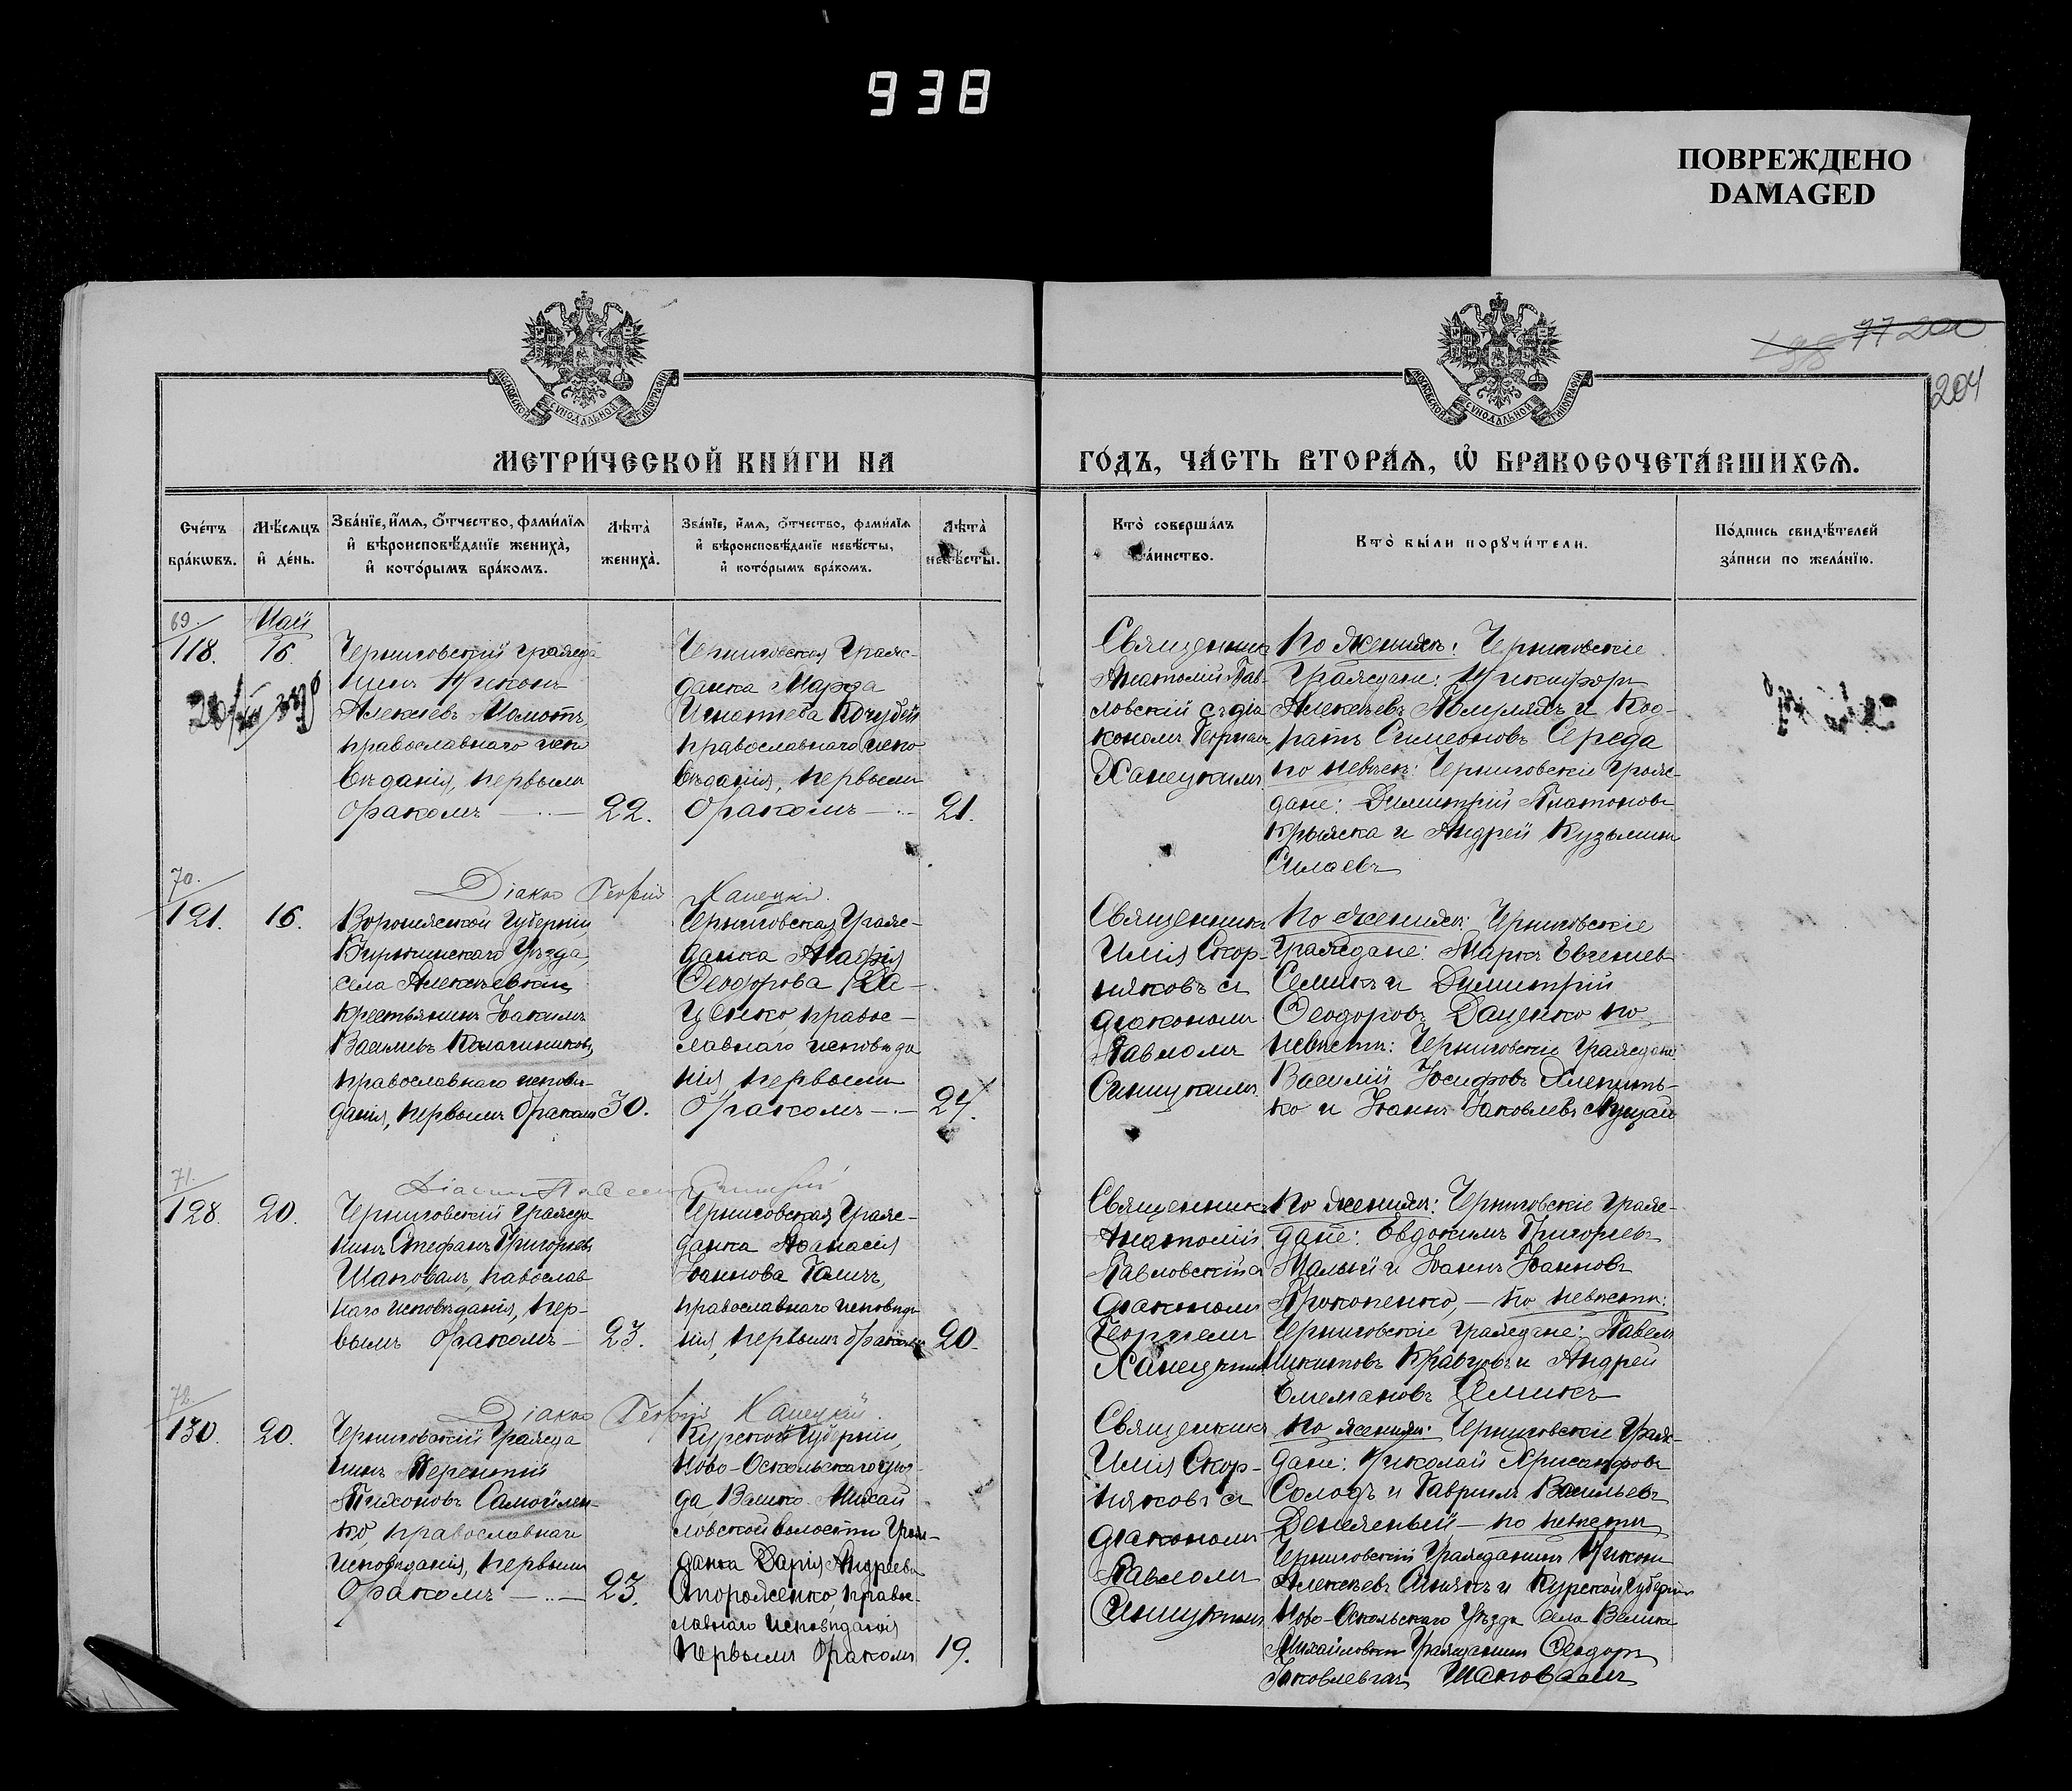 938
ПОВРЕЖДЕНО
DAMAGED
77 200
204
МОСКОВСКОЙ СѴНОДАЛЬНОЙ ТИПОГРАФІИ
МОСКОВСКОЙ СѴНОДАЛЬНОЙ ТИПОГРАФІИ
МЕТРИ́ЧЕСКОЙ КНИ́ГИ НА ГО́ДЪ, ЧА́СТЬ ВТОРА́Ѧ, Ѽ БРАКОСОЧЕТА́ВШИХСѦ.
Сче́тъ бра́кѡвъ.
Мѣ́сѧцъ и҆ де́нь.
Зва́нїе, и҆́мѧ, ѻ҆́тчество, фами́лїѧ
и҆ вѣроисповѣ́данїе жениха̀,
и҆ кото́рымъ бра́комъ.
Лѣта̀ жениха̀.
Зва́нїе, и҆́мѧ, ѻ҆́тчество, фами́лїѧ
и҆ вѣроисповѣ́данїе невѣ́сты,
и҆ кото́рымъ бра́комъ.
Лѣта̀ невѣ́сты.
Кто̀ соверша́лъ таинство.
Кто̀ бы́ли порꙋчи́тели.
По́дпись свидѣ́телей
за́писи по жела́нїю.
69.
118.
Май
16
Черниговскій гражда
нинъ Никонъ
Алексѣевъ Момотъ,
православнаго испо
вѣданія, первымъ
бракомъ —..— 22.
Черниговская граж-
данка Марѳа
Игнатьева Кочубей
православнаго испо
вѣданія, первымъ
бракомъ —..— 21.
Священникъ
Анатолій Пав-
ловскій съ діа
кономъ Георгіемъ
Ханецкимъ
По женихѣ: Черниговскіе
граждане: Никифоръ
Алексѣевъ и Код-
ратъ Симеоновъ Середа
по невѣстѣ: Черниговскіе граж-
дане: Димитрій Платоновъ
Крыжска и Андрей Кузьминъ
Силаевъ
Діаконъ Георгій Ханецкій.
70.
121. 16.
Воронежской губерніи,
Бирюченскаго уѣзда,
села Алексѣевки
крестьянинъ Іоакимъ
Васильевъ Калашниковъ,
православнаго исповѣ-
данія, первымъ бракомъ 30.
Черниговская граж-
данка
Ѳеодорова Да-
ценко правос-
лавнаго исповѣда
нія, первымъ
бракомъ —.— 24.
Священникъ
Илія Скор-
няковъ съ
діакономъ
Павломъ
Синицкимъ
По женихѣ: Черниговскіе
граждане: Маркъ Евгеніевъ
Семикъ и Димитрій
Ѳеодоровъ Даценко по
невѣстѣ: Черниговскіе граждане
Василій Іосифовъ
ко и Іоаннъ Іаковлевъ Куцай
Діаконъ Павелъ Синицкій
71.
128. 20.
Черниговскій гражда
нинъ Стефанъ Григорьевъ
Шаповалъ, православ
наго исповѣданія, пер-
вымъ бракомъ — 23.
Черниговская граж-
данка Аѳанасія
Іоаннова Галичъ,
православнаго исповѣда
нія, первымъ бракомъ 20.
Священникъ
Анатолій
Павловскій съ
діакономъ
Георгіемъ
Ханецкимъ
По женихѣ: Черниговскіе граж-
дане: Евдокимъ Григорьевъ
Малый и Іоаннъ Іоанновъ
Прокопенко, — по невѣстѣ:
Черниговскіе граждане: Павелъ
Никитовъ Кравцовъ и Андрей
Емельяновъ Семикъ
Діаконъ Георгій Ханецкій.
72.
130. 20.
Черниговскій гражда
нинъ Терентій
Тихоновъ Самойлен-
ко, православнаго
исповѣданія, первымъ
бракомъ —..— 23.
Курской губерніи,
Ново-Оскольскаго уѣз-
да Велико-Михай
ловской волости граж-
данка Дарія Андреева
Стороженко, правос-
лавнаго исповѣданія
первымъ бракомъ 19.
Священникъ
Илія Скор-
няковъ съ
діакономъ
Павломъ
Синицкимъ
По женихѣ: Черниговскіе граж-
дане: Николай Хрисанфовъ
Солодъ и Гавріилъ Васильевъ
Денежный — по невѣстѣ
Черниговскій гражданинъ Никонъ
Алексѣевъ и Курской губерніи
Ново-Оскольскаго уѣзда села Велико
Михайловки гражданинъ Ѳеодоръ
Іаковлевичъ Шаповалъ